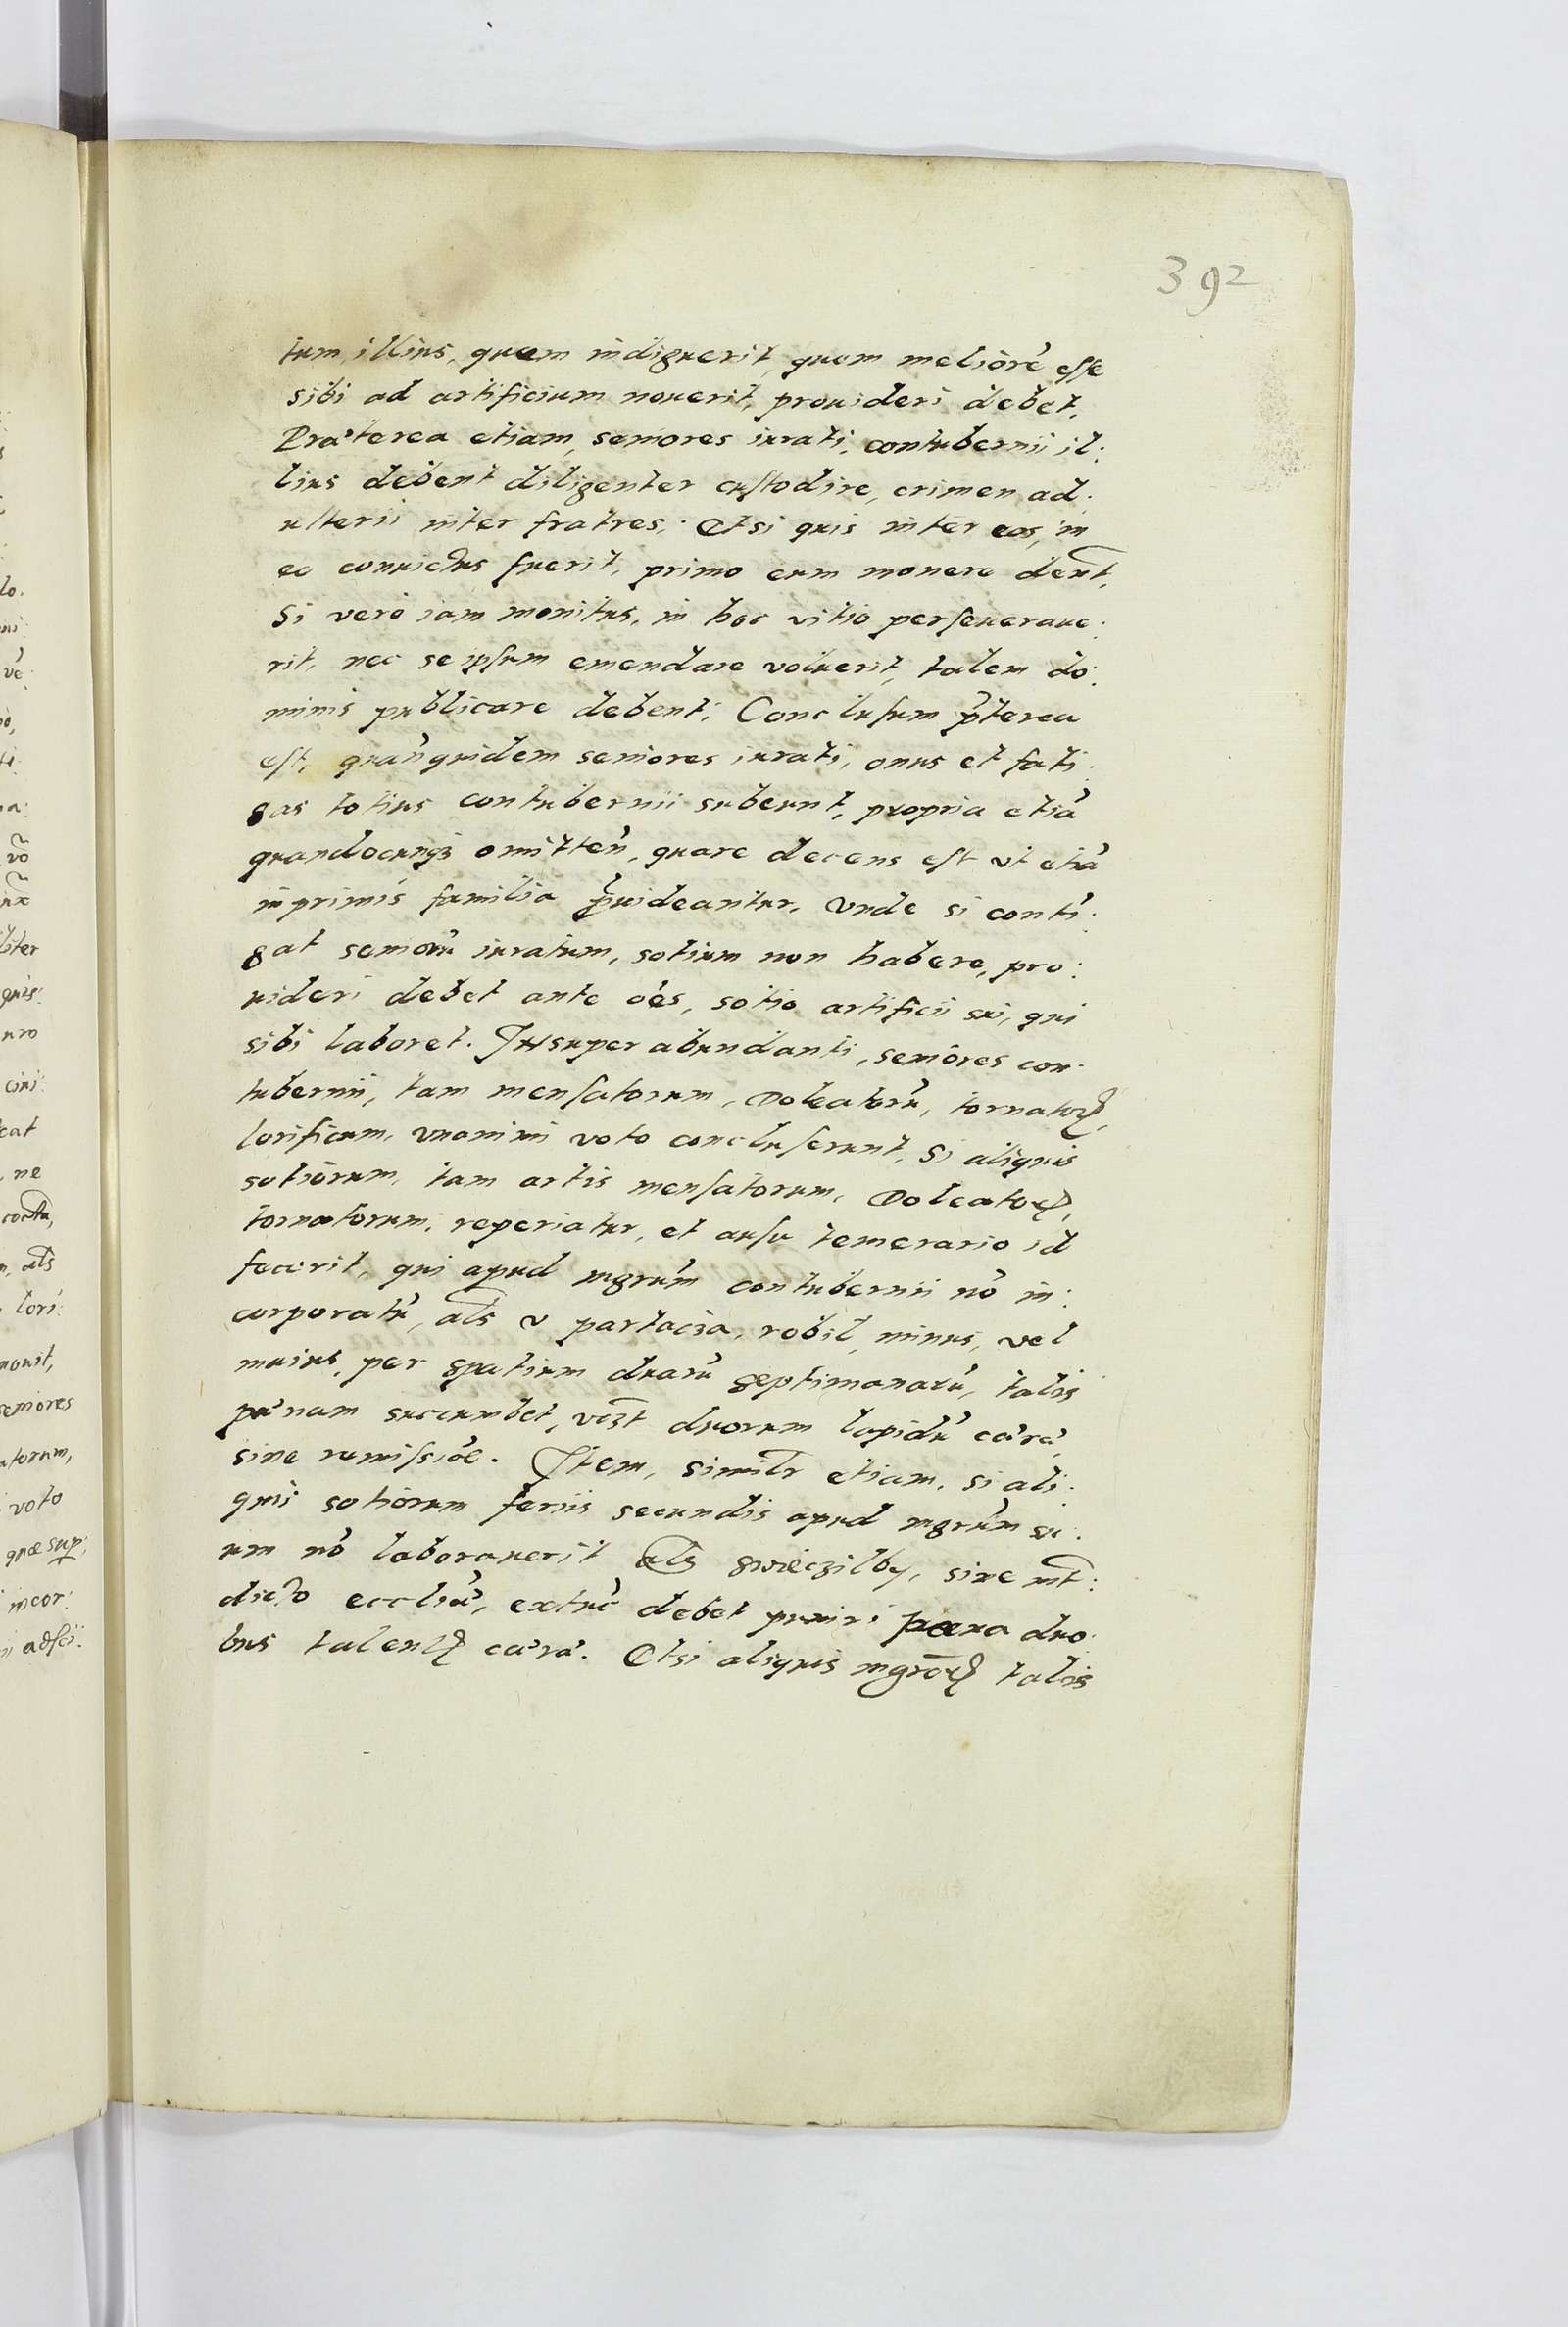 392
tum illius, quem indiguerit, quem meliorē esse
sibi ad artificium nouerit, prouideri debet.
Præterea etiam, seniores iurati, contubernii il:
lius debent diligenter custodire, crimen ad:
ulterii inter fratres. Et si quis inter eos, in
eo conuictus fuerit, primo eum monere debt̄,
Si vero iam monitus, in hoc vitio perseueraue:
rit, nec se ipsum emendare voluerit, talem do:
minis publicare debent. Conclusum p̄terea
est, quan̄quidem seniores iurati, onus et fati:
gas totius contubernii subeunt, propria etiā
quandocunqȝ omitten̄, quare decens est vt etiā
inprimis familia p̄uideantur, Vnde si conti:
gat seniorē iuratum, sotium non habere, pro:
uideri debet ante oēs, sotio artificii sui, qui
sibi laboret. Insuper abundanti, seniores con:
tubernii, tam mensatorum, Doleatorū, tornatoꝝ,
lorificum, vnanimi voto concluserunt, Si aliquis
sotiorum, tam artis mensatorum, Doleatoꝝ,
tornatorum, reperiatur, et ausu temerario id
fecerit, qui apud mgrūm contubernii nō in:
corporatū, als v partacza, robil, minus, vel
maius, per spatium duarū septimanarū, talis
pœnam succumbet, vczt duorum lapidū cæræ,
sine remissiōe. Item, similr etiam, si ali:
quis sotiorum feriis secundis apud mgrūm su:
um nō laborauerit als swięczilby, sine int̄:
dicto eccliæ, extūc debet puniri pœna duo:
bus talentꝝ cæræ. Et si aliquis mgrōꝝ talis